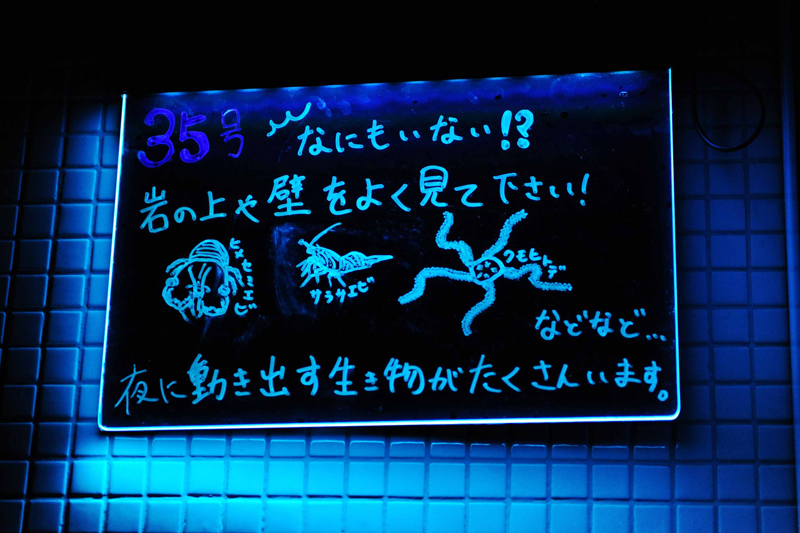 35号 なにもいない!?
岩の上や壁をよく見て下さい!
ヒメセミエビ
サラサエビ
クモヒトデ
などなど...
夜に動き出す生き物がたくさんいます。